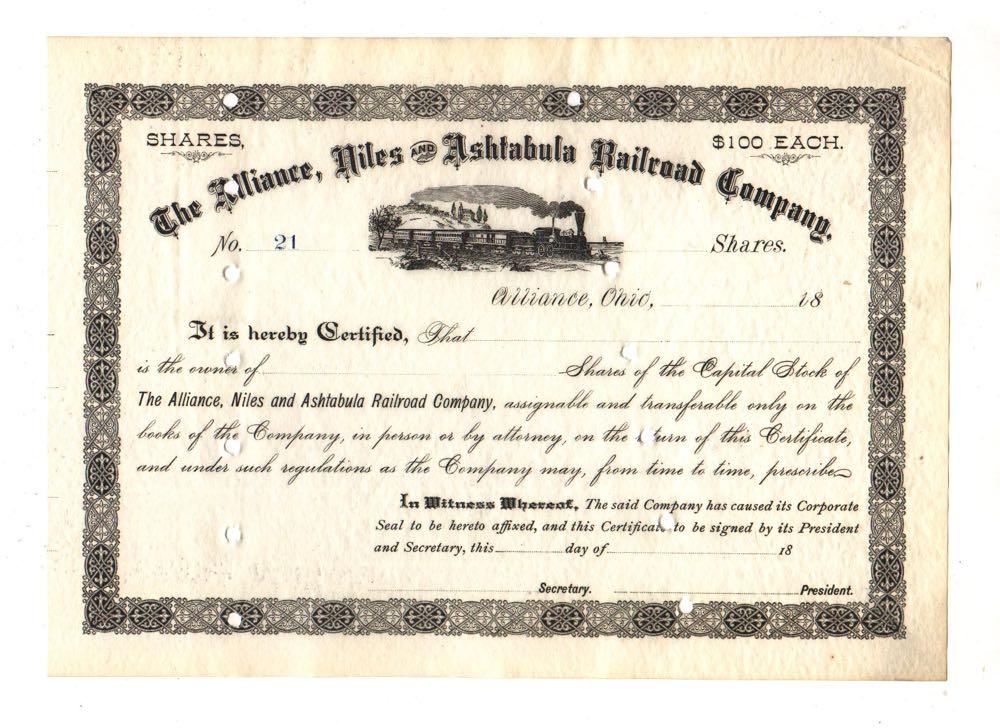 SHARES, $100 EACH.
The Alliance, Niles AND Ashtabula Railroad Company.
No. 21 Shares.
Alliance, Ohio, 18
It is hereby Certified, That
is the owner of Shares of the Capital Stock of
The Alliance, Niles and Ashtabula Railroad Company, assignable and transferable only on the
books of the Company, in person or by attorney, on the return of this Certificate,
and under such regulations as the Company may, from time to time, prescribe
In Witness Whereof, The said Company has caused its Corporate
Seal to be hereto affixed, and this Certificate to be signed by its President
and Secretary, this day of 18
Secretary. President.